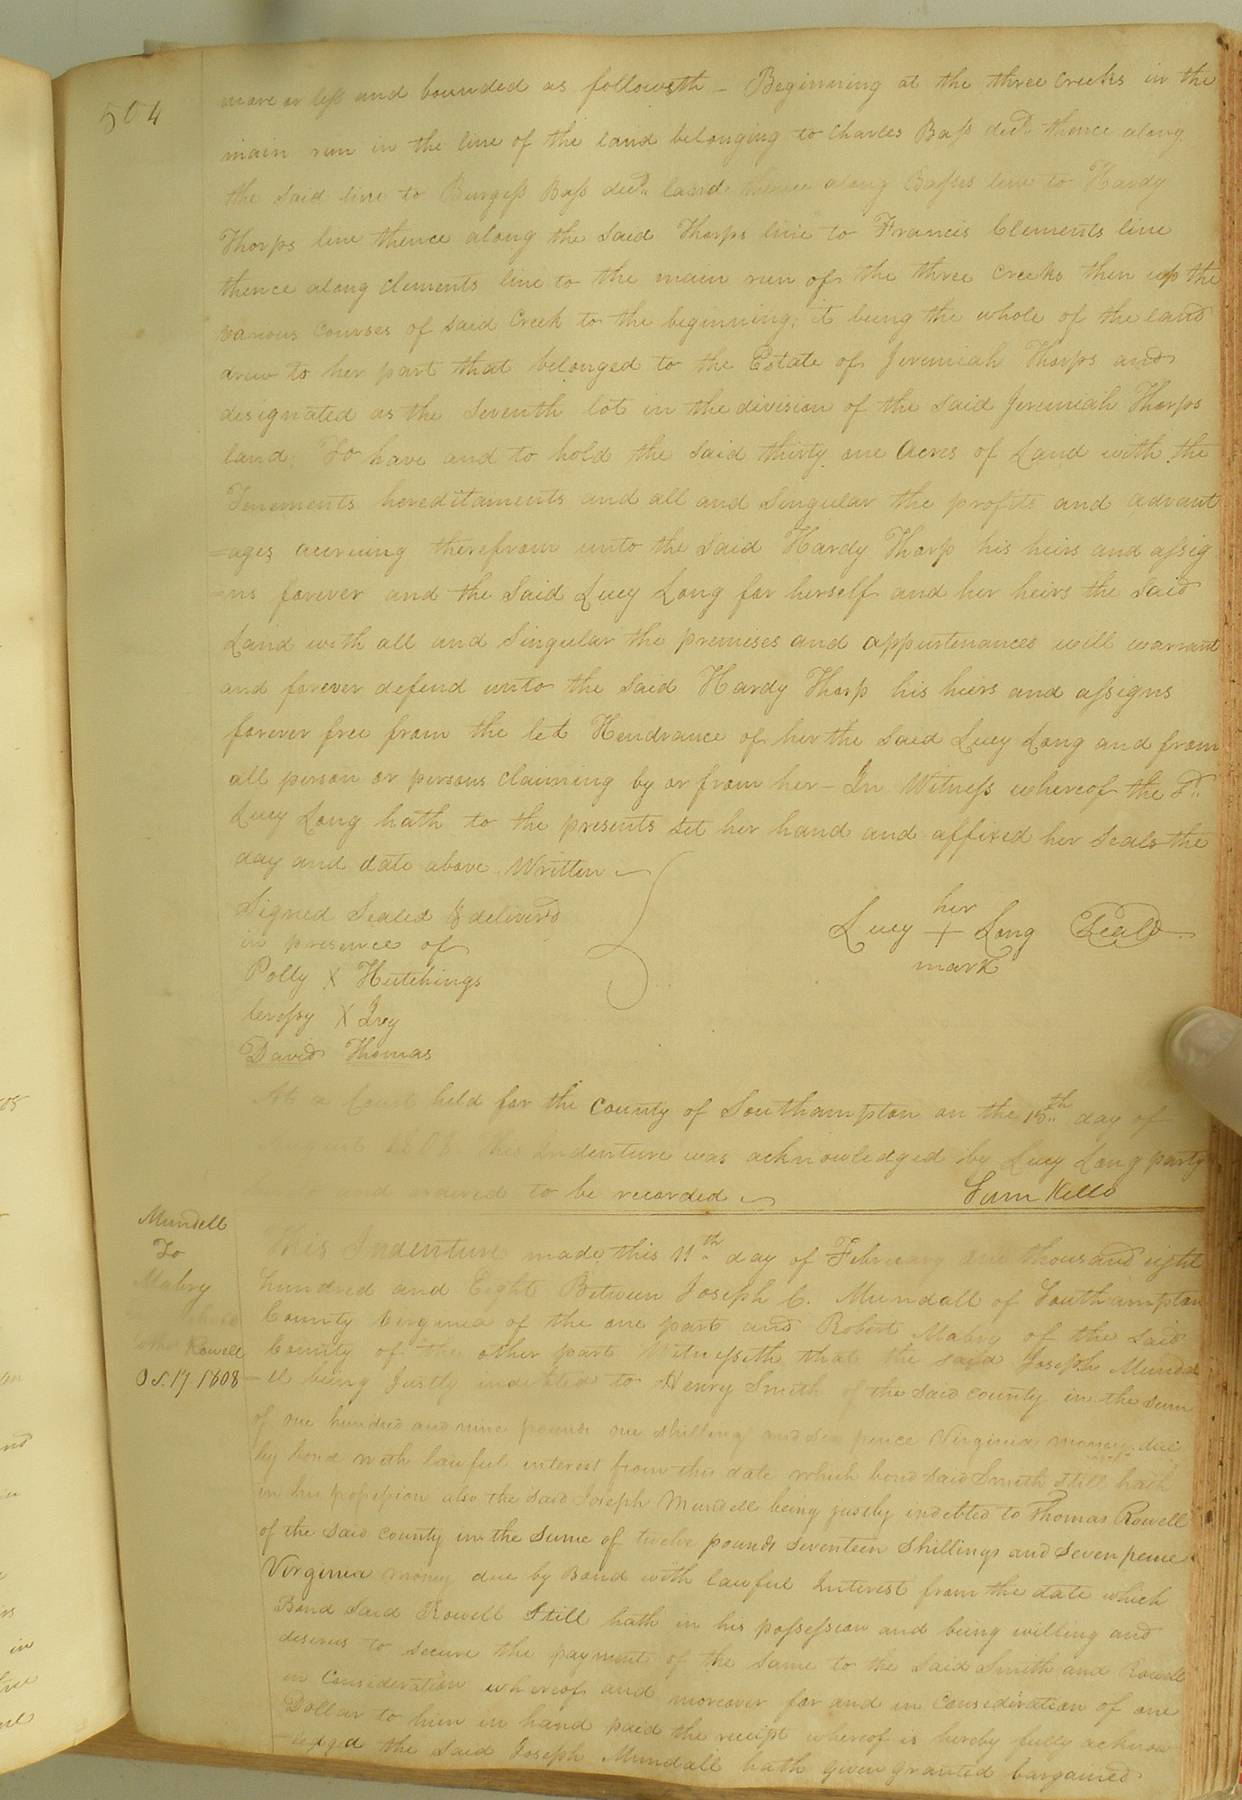 504
more or less and bounded as followeth - Beginning at the three Creeks in the
main run in the line of the land belonging to Charles Bass decd. thence along
the said line to Burgess Bass decd. land thence along Basses line to Hardy
Thorps line thence along the said Thorps line to Francis Clements line
thence along Clements line to the main run of the three Creeks then up the
various courses of said Creek to the beginning; it being the whole of the land
drew to her part that belonged to the Estate of Jeremiah Thorps and
designated as the Seventh lot in the division of the said Jeremiah Thorps
land. To have and to hold the said thirty one Acres of Land with the
Tenements hereditaments and all and Singular the profits and advant
=ages accruing therefrom unto the said Hardy Thorp his heirs and assig
=ns forever and the Said Lucy Long for herself and her heirs the said
Land with all and Singular the premises and appurtenances will warrant
and forever defend unto the said Hardy Thorp his heirs and assigns
forever free from the let Hendrance of her the said Lucy Long and from
all person or persons claiming by or from her - In Witness whereof the Sd.
Lucy Long hath to the presents set her hand and affixed her Seals the
day and date above Written
Signed Sealed & deliverd
in presence of
Polly X Hutchings
X Ivy
David Thomas
her
Lucy + Long Seal
mark
At a Court held for the County of Southampton on the 15th day of
August 1808 This Indenture was acknowledged by Lucy Long party
and ordered to be recorded
Sam Kello
Mundell
To
Mabry
Rowell
Oct. 17 1808
This Indenture made this 11th day of February one thousand eight
hundred and Eight Between Joseph C. Mundall of Southampton
County Virginia of the one part and Robert Mabry of the said
County of the other part Witnesseth that the said Joseph Mundd
=el being Justly indebted to Henry Smith of the said County in the sum
of one hundred and nine pounds one shilling and six pence Virginia money due
by bond with lawful interest from this date which bond said Smith still hath
in his possession also the said Joseph Mundell being justly indebted to Thomas Rowell
of the said County in the Sume of twelve pounds seventeen Shillings and Seven pence
Virginia money due by Bond with lawful Interest from the date which
Bond Said Rowell Still hath in his possession and being willing and
desirus to secure the payment of the same to the said Smith and Rowell
in Consideration whereof and moreover for and in Consideration of one
Dollar to him in hand paid the receipt whereof is hereby fully acknow
=ledged the said Joseph Mundall hath given granted bargained